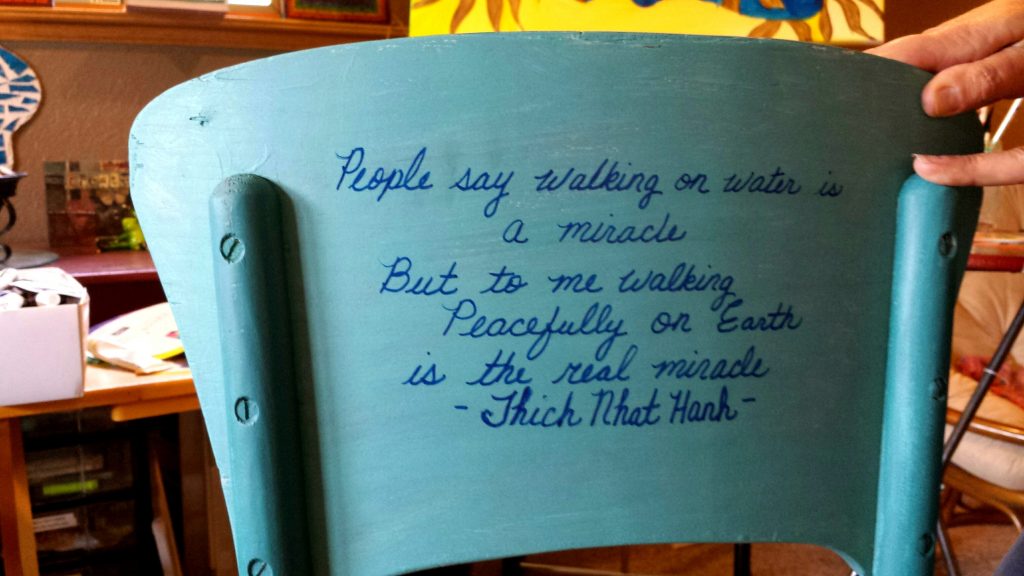 People say walking on water is
a miracle
But to me walking
Peacefully on Earth
is the real miracle
- Thich Nhat Hanh -